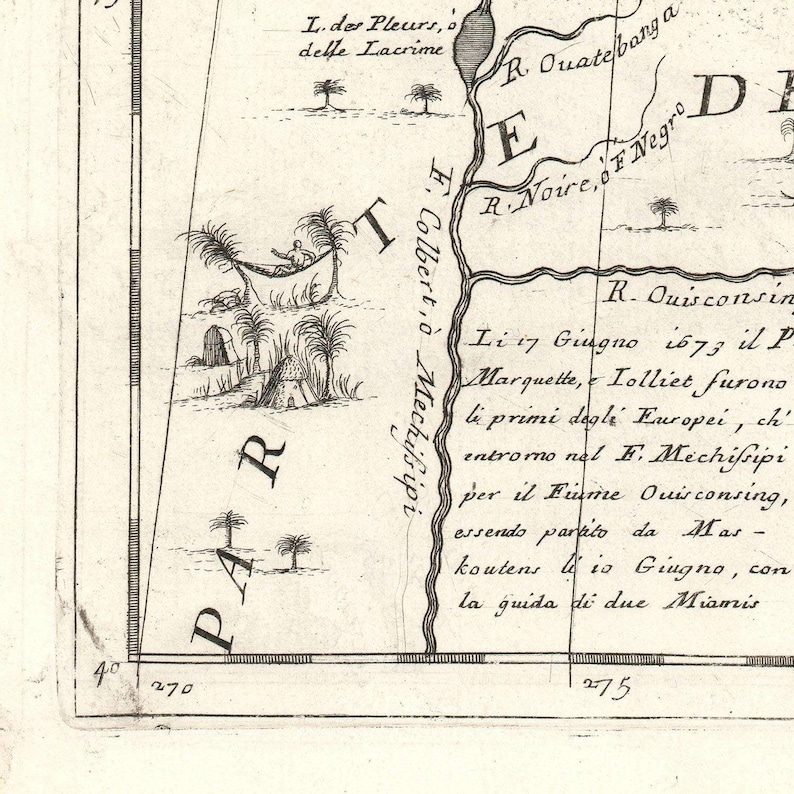 L. des Pleurs, ò
delle Lacrime
R. Ouatebanga
PARTE
R. Noire, ò F. Negro
F. Colbert, ò Mechiſsipi
R. Ouisconsing
Li 17 Giugno 1673 il P
Marquette, e Iolliet furono
li primi degli Europei, ch'
entrorno nel F. Mechiſsipi
per il Fiume Ouisconsing,
essendo partito da Mas-
koutens li 10 Giugno, con
la guida di due Miamis
40
270
275